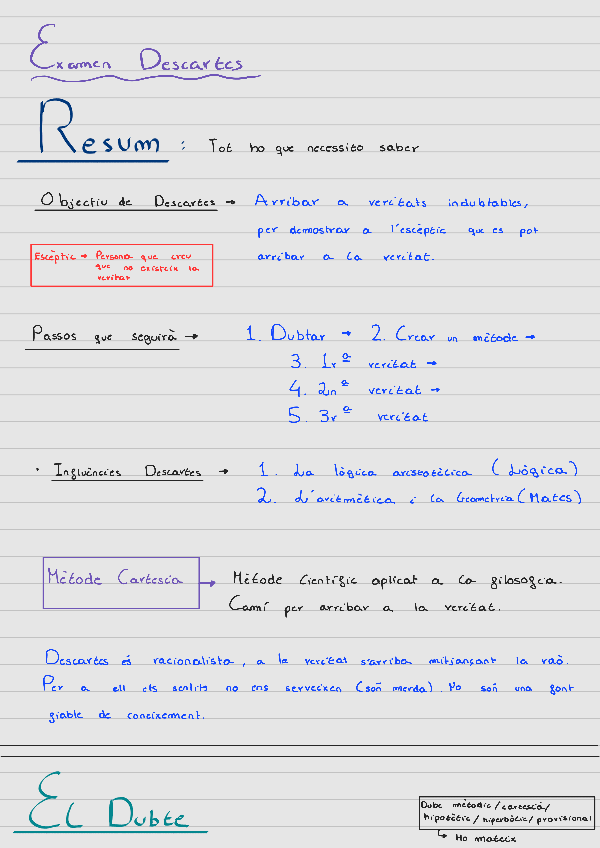 Examen Descartes
Resum : Tot ho que necessito saber
Objectiu de Descartes → Arribar a veritats indubtables,
per demostrar a l'escèptic que es pot
arribar a la veritat.
Escèptic → Persona que creu
que no existeix la
veritat
Passos que seguirà → 1. Dubtar → 2. Crear un mètode →
3. 1rª veritat →
4. 2nª veritat →
5. 3rª veritat
· Influències Descartes → 1. La lògica aristotèlica (Lògica)
2. L'aritmètica i la Geometria (Mates)
Mètode Cartesià → Mètode Científic aplicat a la filosofia.
Camí per arribar a la veritat.
Descartes és racionalista, a la veritat s'arriba mitjançant la raó.
Per a ell els sentits no ens serveixen (són merda). No són una font
fiable de coneixement.
El Dubte
Dubte metòdic/cartesià/
hipotètic/hiperbòlic/provisional
↳ Ho mateix